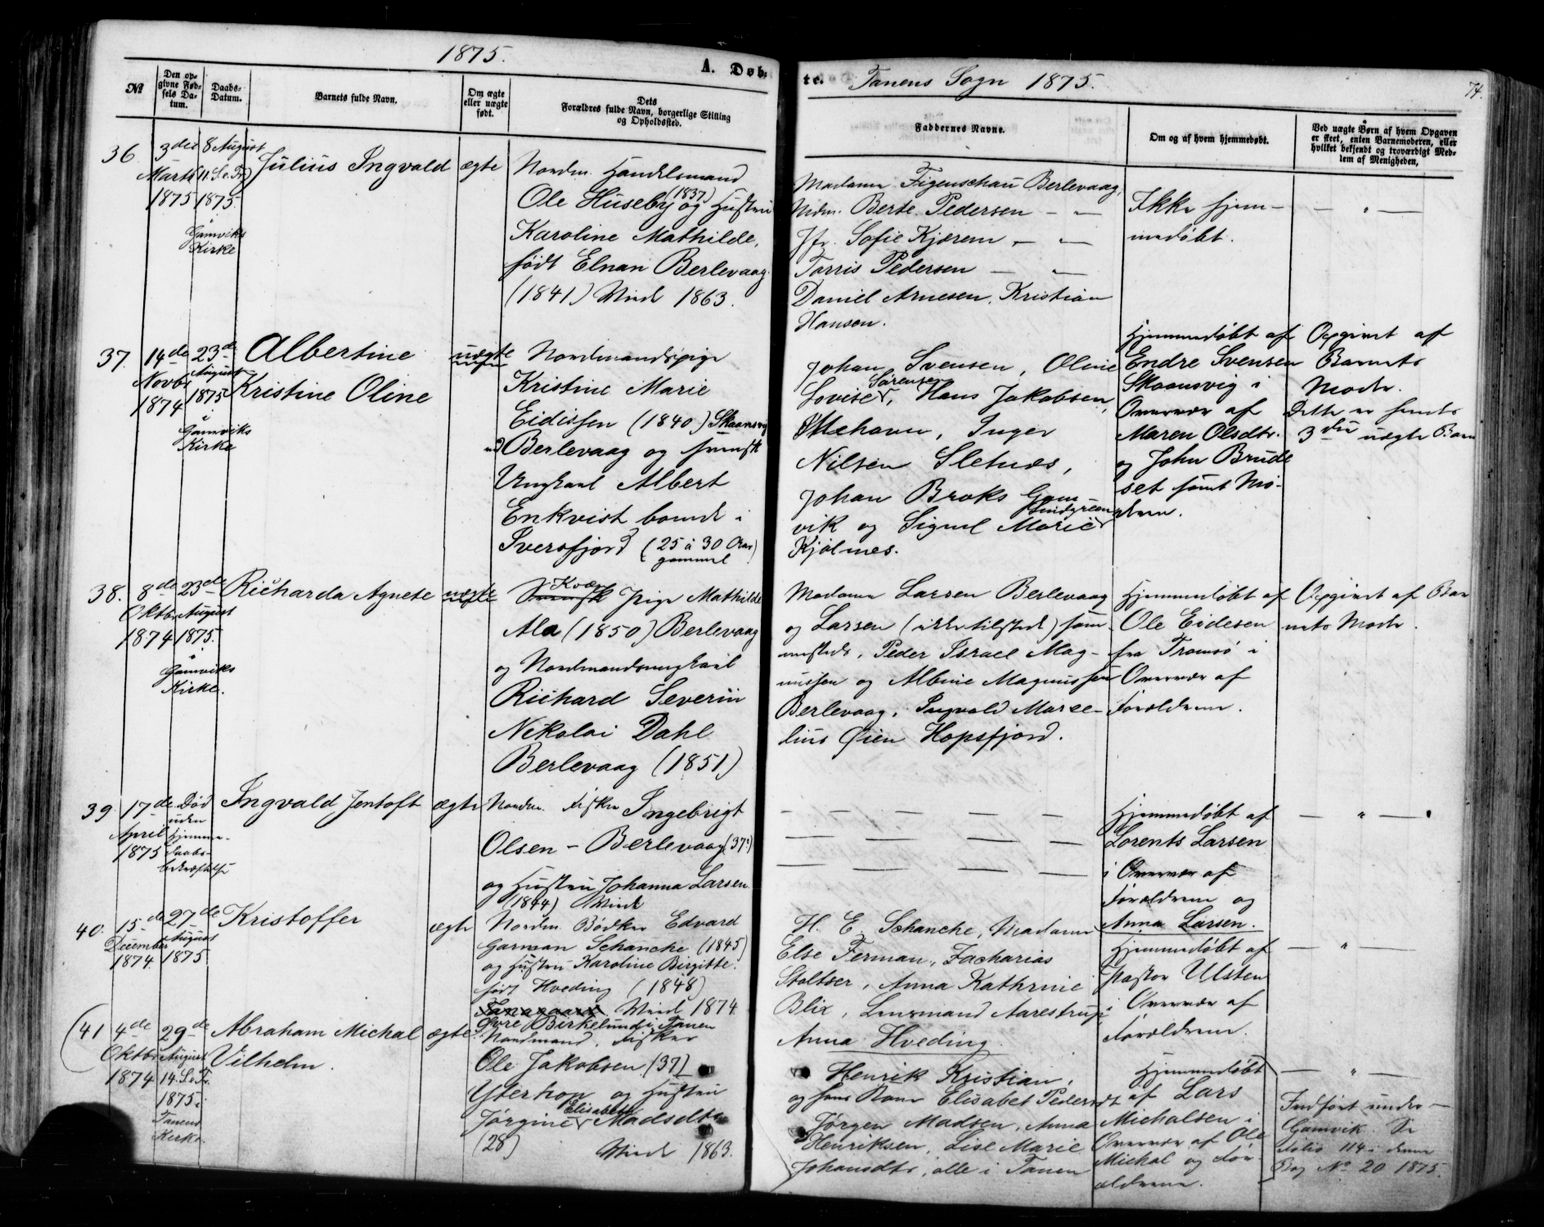 1875.
A. Døb-
te.
Tanens Sogn 1875.
74.
№
Den op-
givne Fød-
sels Da-
tum.
Daabs-
Datum.
Barnets fulde Navn.
Om ægte
eller uægte
født.
Dets
Forældres fulde Navn, borgerlige Stilling
og Opholdssted.
Faddernes Navne.
Om og af hvem hjemmedøbt.
Ved uægte Børn af hvem Opgaven
er skeet, enten Barnemoderen, eller
hvilket bekjendt og troværdigt Med-
lem af Menigheden,
36
3die
Marts
1875
8 August
11. S. e. Tr.
1875
i
Gamviks
Kirke
Julius Ingvald
ægte
Nordm. Handelsmand
Ole Huseby (1837) og Hustru
Karoline Mathilde,
født Elnan Berlevaag
(1841) Viede 1863.
Madame Figenschau Berlevaag,
Nidm. Berte Pedersen — —
Jfr. Sofie Kjeren — —
Torris Pedersen — —
Daniel Arnesen, Kristian
Hansen.
Ikke hjem-
medøbt.
— " —
37.
14de
Novbr
1874
23de
August
1875
i
Gamviks
Kirke
Albertine
Kristine Oline
uægte
Nordmandspige
Kristine Marie
Eidissen (1840) Skaansvig
Berlevaag og svensk
Ungkarl Albert
Enkvist boende i
Sversfjord (25 à 30 Aar
gammel)
Johan Svensen, Oline
Lovise Sørensen, Hans Jakobsen,
Mehavn, Inger
Nilsen Sletnes,
Johan Broks Gam-
vik og Signel Marie Lindgreen
Kjølnes.
Hjemmedøbt af
Endre Svensen
Skaansvig i
Overvær af
Maren Olsdtr.
og John Brude
set samt Mo-
deren.
Opgivet af
Barnets
Moder.
Dette er hendes
3die uægte Barn
38.
8de
Oktbr
1874
23de
August
1875.
i
Gamviks
Kirke.
Richarda Agnete
uægte
Kvæn
Pige Mathilde
Ala (1850) Berlevaag
og Nordmandsungkarl
Richard Severin
Nikolai Dahl
Berlevaag (1851)
Madame Larsen Berlevaag
og Larsen (ikke tilstede) sam-
mesteds, Peder Israel Mag-
nussen og Albine Magnussen
Berlevaag, Ingvald Marce-
lius Øien Hopsfjord.
Hjemmedøbt af
Ole Eidesen
fra Tromsø i
Overvær af
Forældrene.
Opgivet af Bar
nets Moder.
39
17de
April
1875
Død
uden
Hjemme-
daabs-
bekræftelse
Ingvald Jentoft
ægte
Nordm. Fisker Ingebrigt
Olsen - Berlevaag (37)
og Hustru Johanna Larsen
(1844) Viede
— — — — — —
Hjemmedøbt af
Lorents Larsen
i Overvær af
Forældrene og
Anna Larsen.
— " —
40.
15de
December
1874
27de
August
1875
Kristoffer
ægte
Nordm. Bødker Edvard
Garman Schancke (1845)
og Hustru Karoline Birgitte,
født Hveding (1848)
Viede 1874
Øvre Birkelund i Tanen
H. E. Schancke, Madame
Else Ferman, Zacharias
Stoltser, Anna Kathrine
Blix, Lensmand Aarestrup,
Anna Hveding.
Hjemmedøbt af
Pastor Ulsten
i Overvær af
Forældrene.
— " —
(41
4de
Oktbr
1874
29de
August
14. S. e. Tr.
1875 i
Tanens
Kirke
Abraham Michal
Vilhelm.
ægte
Nordmand, Fisker
Ole Jakobsen (37)
Yterhop og Hustru
Jørgine Elisabeth Madsdtr
(28) Viede 1863.
Henrik Kristian,
og hans Kone Elisabet Pedersdt
Jørgen Madsen, Anna
Henriksen, Lise Marie
Johansdtr, alle i Tanen
Hjemmedøbt
af Lars
Michalsen i
Overvær af Ole
Michal og For
ældrene.
— " —
Indført under
Gamvik. Se
Folio 114 i denne
Bog № 20 1875.